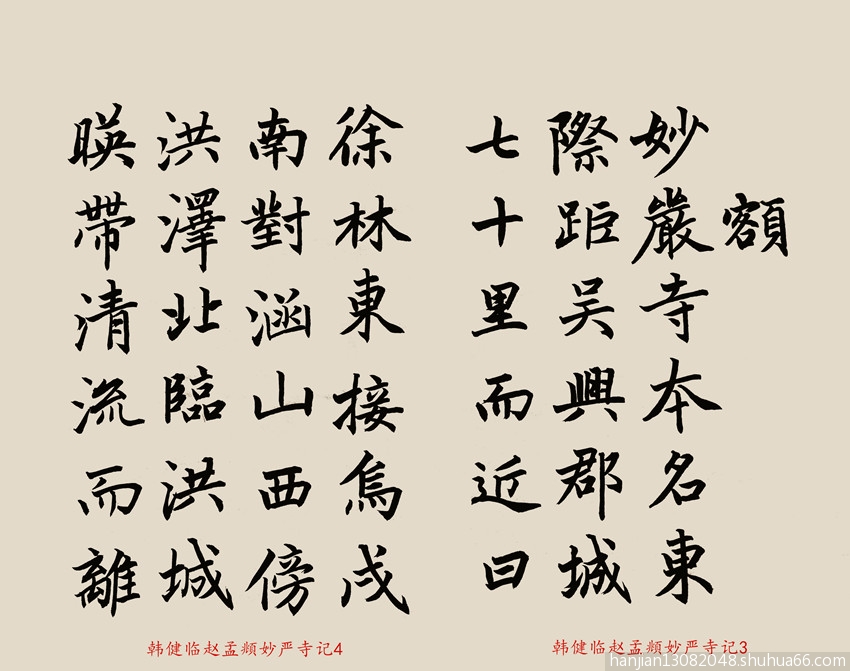 額
妙嚴寺本名東
際距吴興郡城
七十里而近曰
徐林東接烏戍
南對涵山西傍
洪澤北臨洪城
暎帶清流而離
韩健临赵孟頫妙严寺记3
韩健临赵孟頫妙严寺记4
hanjian13082048.shuhua66.com